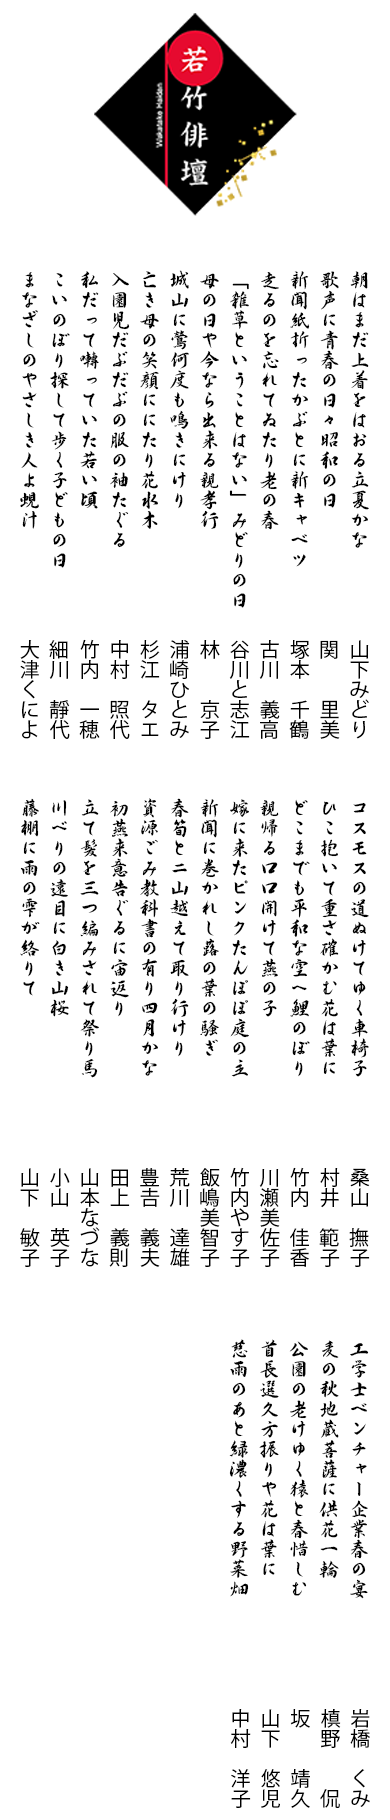 若竹俳壇
Wakatake Haidan
朝はまだ上着をはおる立夏かな
山下みどり
歌声に青春の日々昭和の日
関 里美
新聞紙折ったかぶとに新キャベツ
塚本 千鶴
走るのを忘れてゐたり老の春
古川 義高
「雑草ということはない」みどりの日
谷川と志江
母の日や今なら出来る親孝行
林 京子
城山に鶯何度も鳴きにけり
浦崎ひとみ
亡き母の笑顔ににたり花水木
杉江 タエ
入園児だぶだぶの服の袖たぐる
中村 照代
私だって囀っていた若い頃
竹内 一穂
こいのぼり探して歩く子どもの日
細川 靜代
まなざしのやさしき人よ蜆汁
大津くによ
コスモスの道ぬけてゆく車椅子
桑山 撫子
ひこ抱いて重さ確かむ花は葉に
村井 範子
どこまでも平和な空へ鯉のぼり
竹内 佳香
親帰る口口開けて燕の子
川瀬美佐子
嫁に来たピンクたんぽぽ庭の主
竹内やす子
新聞に巻かれし蕗の葉の騒ぎ
飯嶋美智子
春筍と二山越えて取り行けり
荒川 達雄
資源ごみ教科書の有り四月かな
豊𠮷 義夫
初燕来意告ぐるに宙返り
田上 義則
立て髪を三つ編みされて祭り馬
山本なづな
川べりの遠目に白き山桜
小山 英子
藤棚に雨の雫が絡りて
山下 敏子
工学士ベンチャー企業春の宴
岩橋 くみ
麦の秋地蔵菩薩に供花一輪
槙野 侃
公園の老けゆく猿と春惜しむ
坂 靖久
首長選久方振りや花は葉に
山下 悠児
慈雨のあと緑濃くする野菜畑
中村 洋子